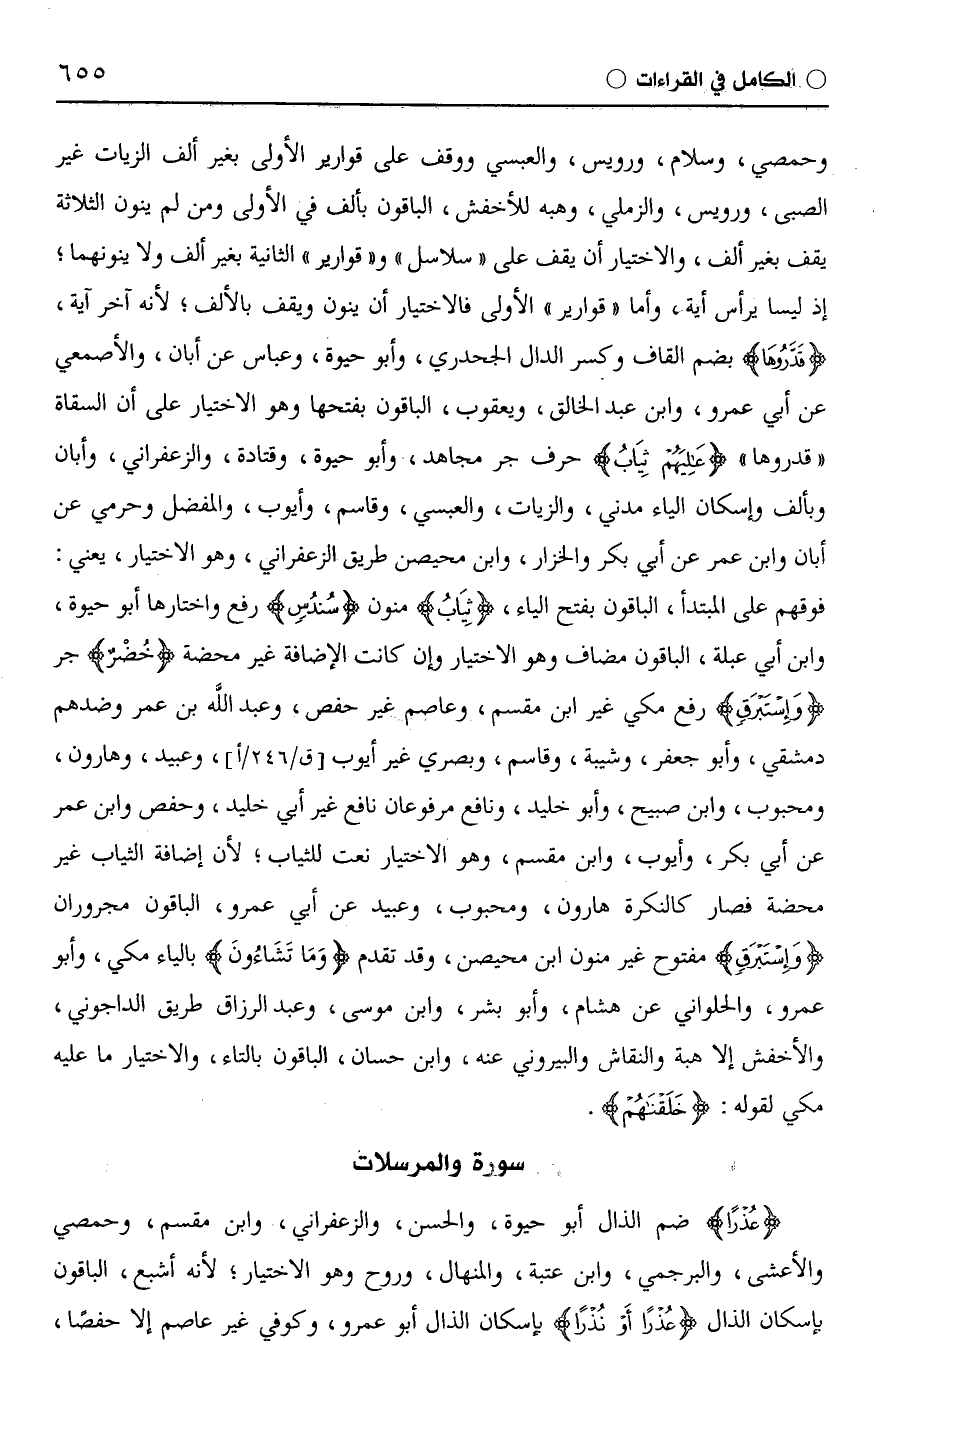 ○ الكامل في القراءات ○ ٦٥٥
وحمصي، وسلام، ورويس، والعبسي ووقف على قوارير الأولى بغير ألف الزيات غير
الصبى، ورويس، والزملي، وهبه للأخفش، الباقون بألف في الأولى ومن لم ينون الثلاثة
يقف بغير ألف، والاختيار أن يقف على «سلاسل» و«قوارير» الثانية بغير ألف ولا ينونهما؛
إذ ليسا يرأس أية، وأما «قوارير» الأولى فالاختيار أن ينون ويقف بالألف؛ لأنه آخر آية،
﴿قَدَّرُوهَا﴾ بضم القاف وكسر الدال الجحدري، وأبو حيوة، وعباس عن أبان، والأصمعي
عن أبي عمرو، وابن عبد الخالق، ويعقوب، الباقون بفتحها وهو الاختيار على أن السقاة
«قدروها» ﴿عَٰلِيَهُمْ ثِيَابُ﴾ حرف جر مجاهد، وأبو حيوة، وقتادة، والزعفراني، وأبان
وبألف وإسكان الياء مدني، والزيات، والعبسي، وقاسم، وأيوب، والمفضل وحرمي عن
أبان وابن عمر عن أبي بكر والخزار، وابن محيصن طريق الزعفراني، وهو الاختيار، يعني:
فوقهم على المبتدأ، الباقون بفتح الياء، ﴿ثِيَابُ﴾ منون ﴿سُندُسٍ﴾ رفع واختارها أبو حيوة،
وابن أبي عبلة، الباقون مضاف وهو الاختيار وإن كانت الإضافة غير محضة ﴿خُضْرٌ﴾ جر
﴿وَإِسْتَبْرَقٍ﴾ رفع مكي غير ابن مقسم، وعاصم غير حفص، وعبد اللَّه بن عمر وضدهم
دمشقي، وأبو جعفر، وشيبة، وقاسم، وبصري غير أيوب [ق/٢٤٦/أ]، وعبيد، وهارون،
ومحبوب، وابن صبيح، وأبو خليد، ونافع مرفوعان نافع غير أبي خليد، وحفص وابن عمر
عن أبي بكر، وأيوب، وابن مقسم، وهو الاختيار نعت للثياب؛ لأن إضافة الثياب غير
محضة فصار كالنكرة هارون، ومحبوب، وعبيد عن أبي عمرو، الباقون مجروران
﴿وَإِسْتَبْرَقٍ﴾ مفتوح غير منون ابن محيصن، وقد تقدم ﴿وَمَا تَشَاءُونَ﴾ بالياء مكي، وأبو
عمرو، والحلواني عن هشام، وأبو بشر، وابن موسى، وعبد الرزاق طريق الداجوني،
والأخفش إلا هبة والنقاش والبيروني عنه، وابن حسان، الباقون بالتاء، والاختيار ما عليه
مكي لقوله: ﴿خَلَقْنَٰهُمْ﴾.
سورة والمرسلات
﴿عُذْرًا﴾ ضم الذال أبو حيوة، والحسن، والزعفراني، وابن مقسم، وحمصي
والأعشى، والبرجمي، وابن عتبة، والمنهال، وروح وهو الاختيار؛ لأنه أشبع، الباقون
بإسكان الذال ﴿عُذْرًا أَوْ نُذْرًا﴾ بإسكان الذال أبو عمرو، وكوفي غير عاصم إلا حفصًا،